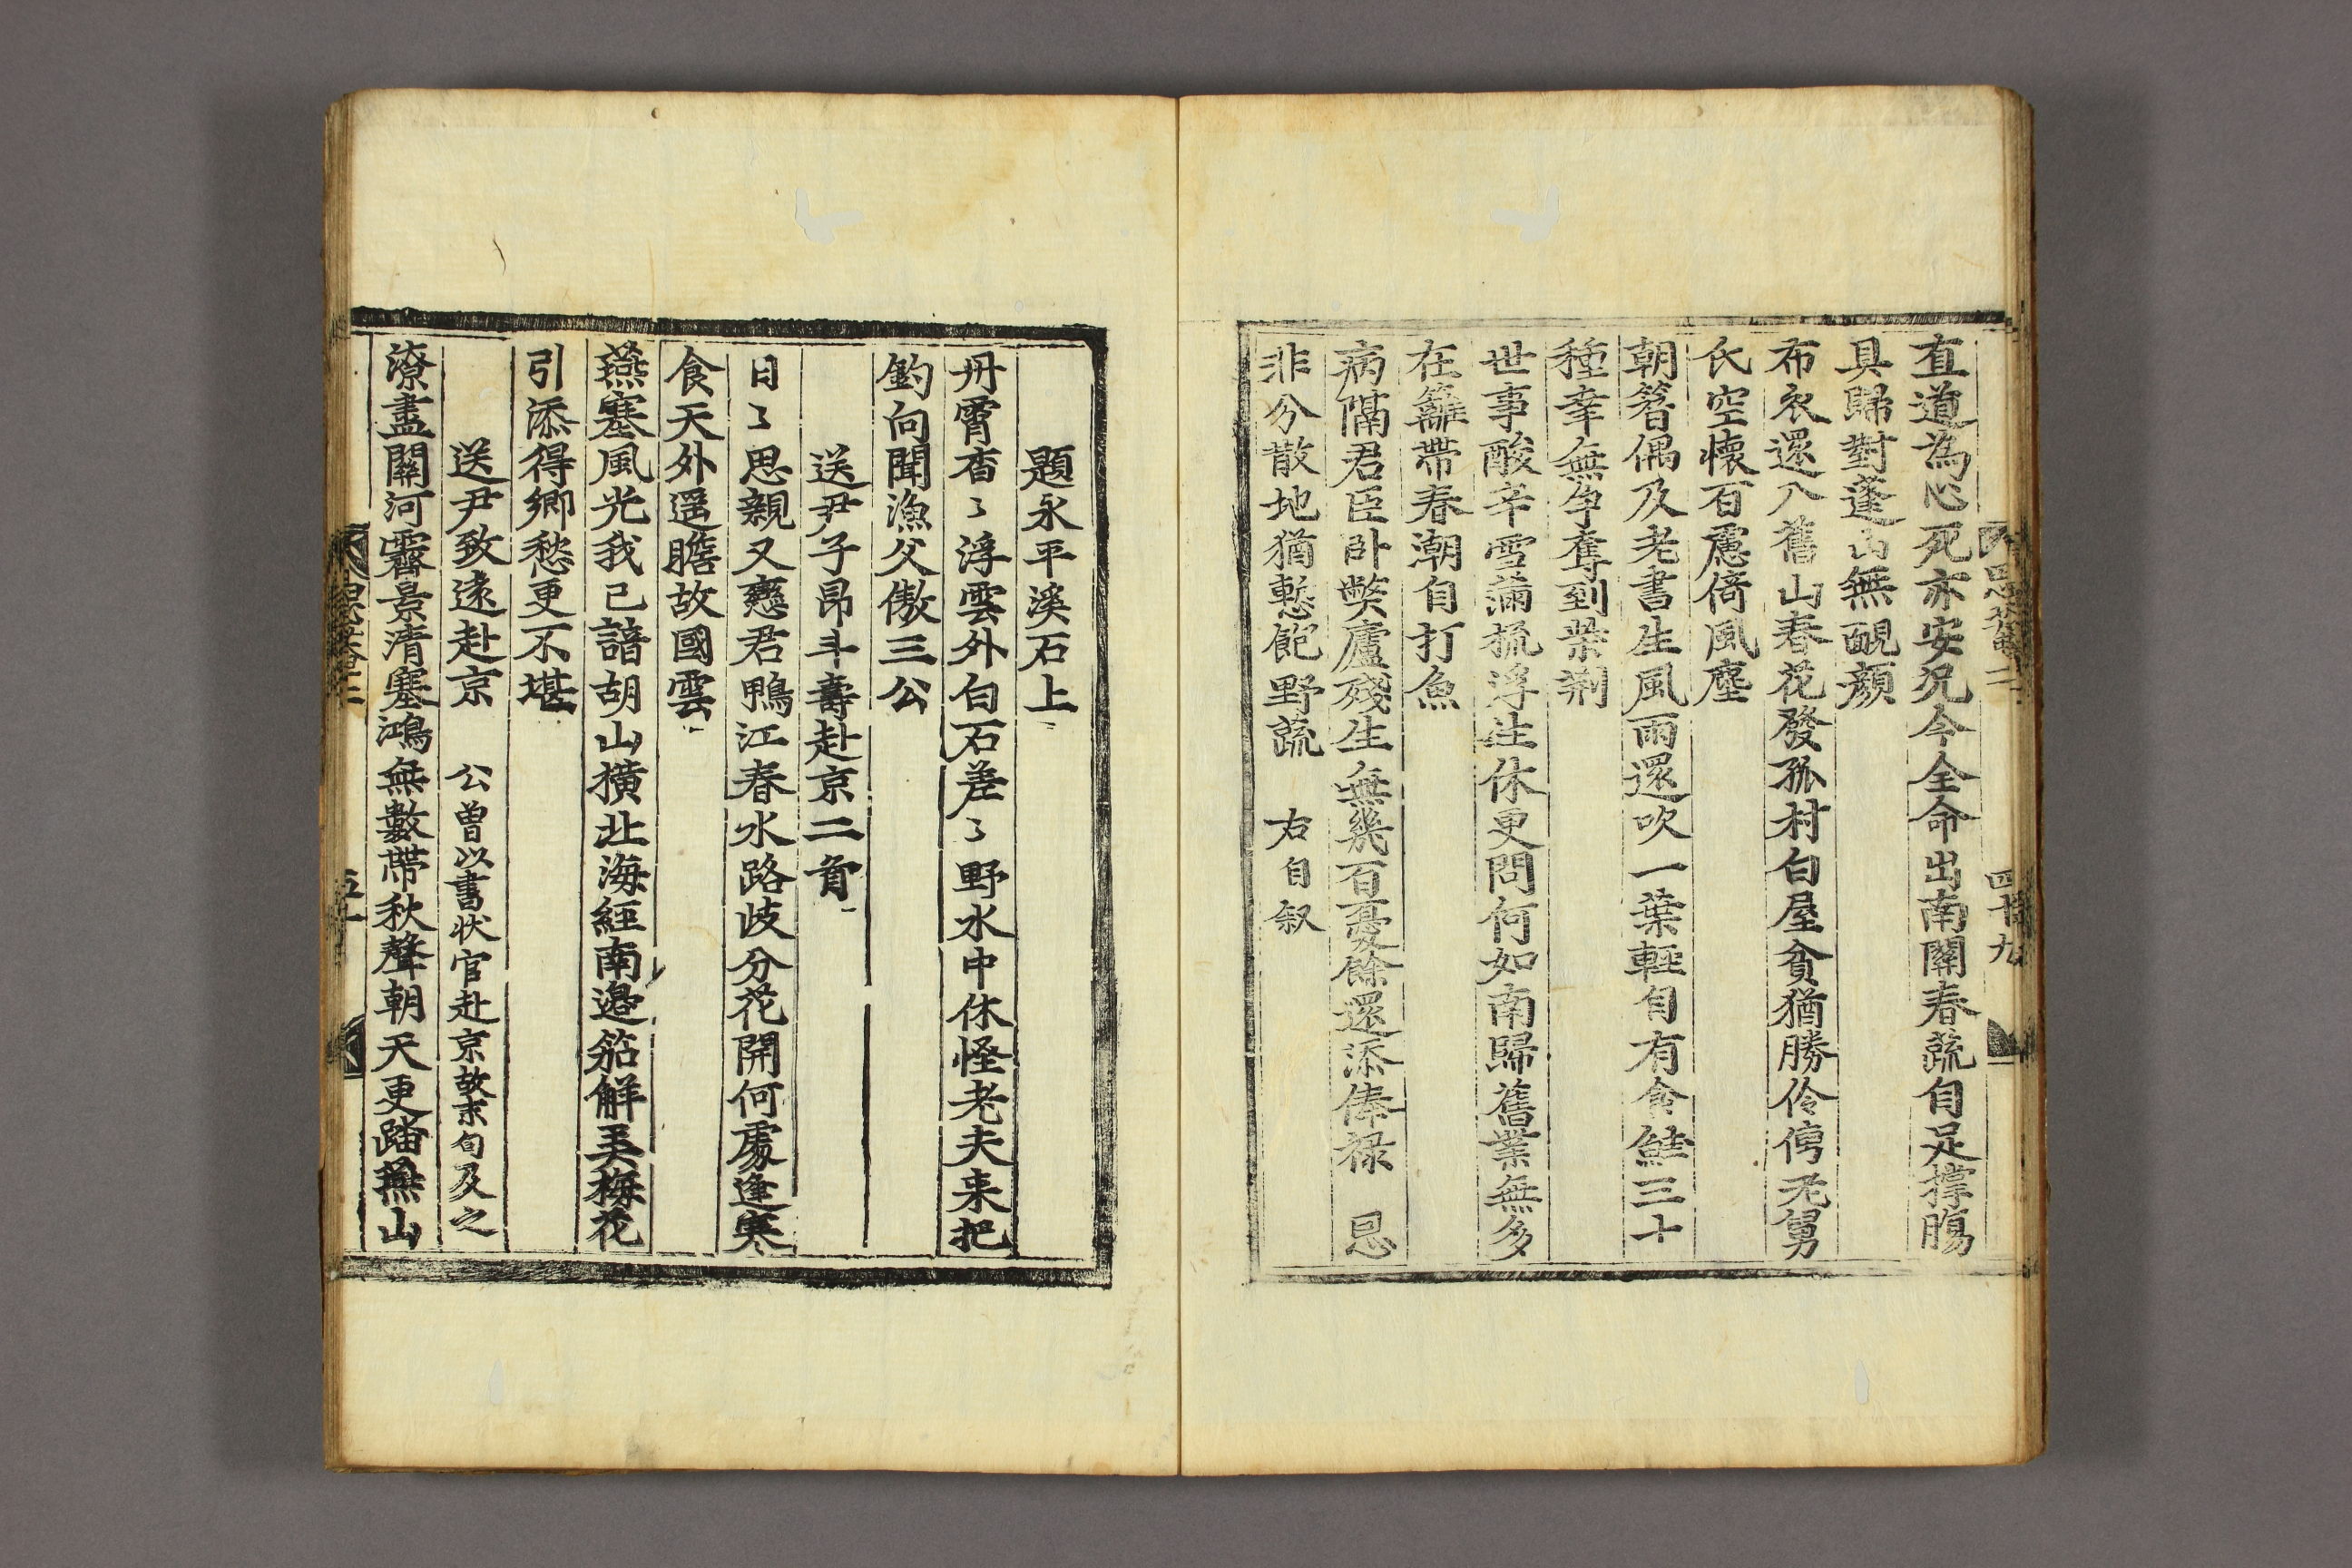 直道為心死亦安况今全命出南關春蔬自足撑腸
具歸對蓬山無靦顏
布衣還入舊山春花發孤村白屋貧猶勝伶俜元舅
氏空懷百慮倚風塵
朝簪偶及老書生風雨還吹一葉輕自有食鮭三十
種幸無争奪到柴荆
世事酸辛雪滿梳浮生休更問何如南歸舊業無多
在籬帶春潮自打魚
病隔君臣卧弊廬殘生無幾百憂餘還添俸禄 恩
非分散地猶慙飽野蔬 右自叙
四十九
題永平溪石上
丹霄杳〻浮雲外白石差〻野水中休怪老夫来把
釣向聞漁父傲三公
送尹子昂斗壽赴京二首
日〻思親又戀君鴨江春水路歧分花開何處逢寒
食天外遥瞻故國雲
燕塞風光我已諳胡山橫北海經南邉笳觧弄梅花
引添得鄉愁更不堪
送尹致遠赴京 公曽以書状官赴京故末句及之
潦盡關河霽景清塞鴻無數帶秋聲朝天更踏燕山
五十